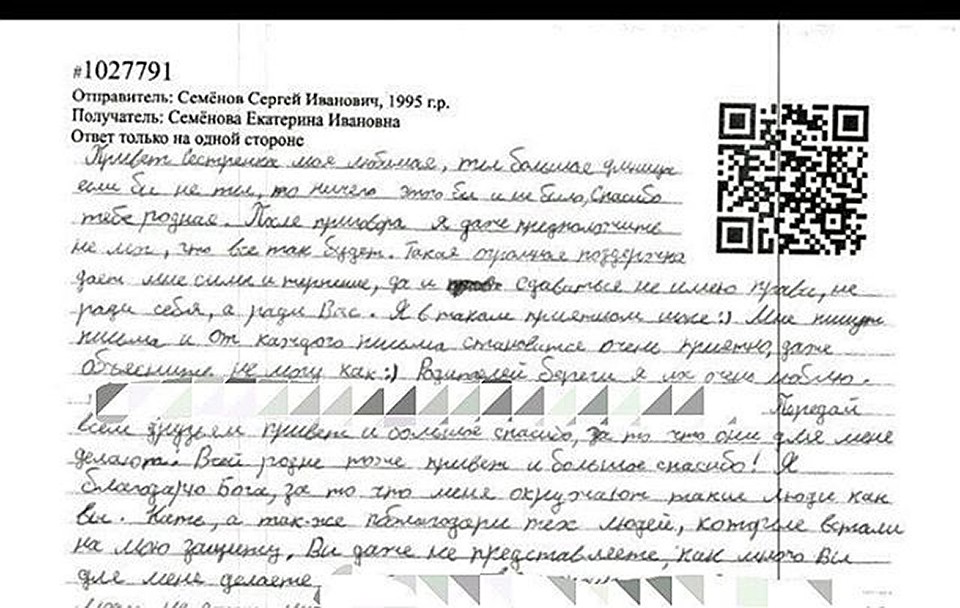 #1027791
Отправитель: Семёнов Сергей Иванович, 1995 г.р.
Получатель: Семёнова Екатерина Ивановна
Ответ только на одной стороне
Привет Сестренка моя любимая, ты большая умница
если бы не ты, то ничего этого бы и не было, Спасибо
тебе родная. После приговора я даже предположить
не мог, что все так будет. Такая огромная поддержка
дает мне силы и терпение, да и сдаваться не имею права, не
ради себя, а ради Вас. Я в таком приятном шоке :) Мне пишут
письма и от каждого письма становится очень приятно, даже
объяснить не могу как :) Родителей береги я их очень люблю.
Передай
всем друзьям привет и большое спасибо, за то что они для меня
делают. Всей родне тоже привет и большое спасибо! Я
благодарю Бога, за то что меня окружают такие люди как
вы. Кать, а так-же поблагодари тех людей, которые встали
на мою защиту, Вы даже не представляете, как много Вы
для меня делаете